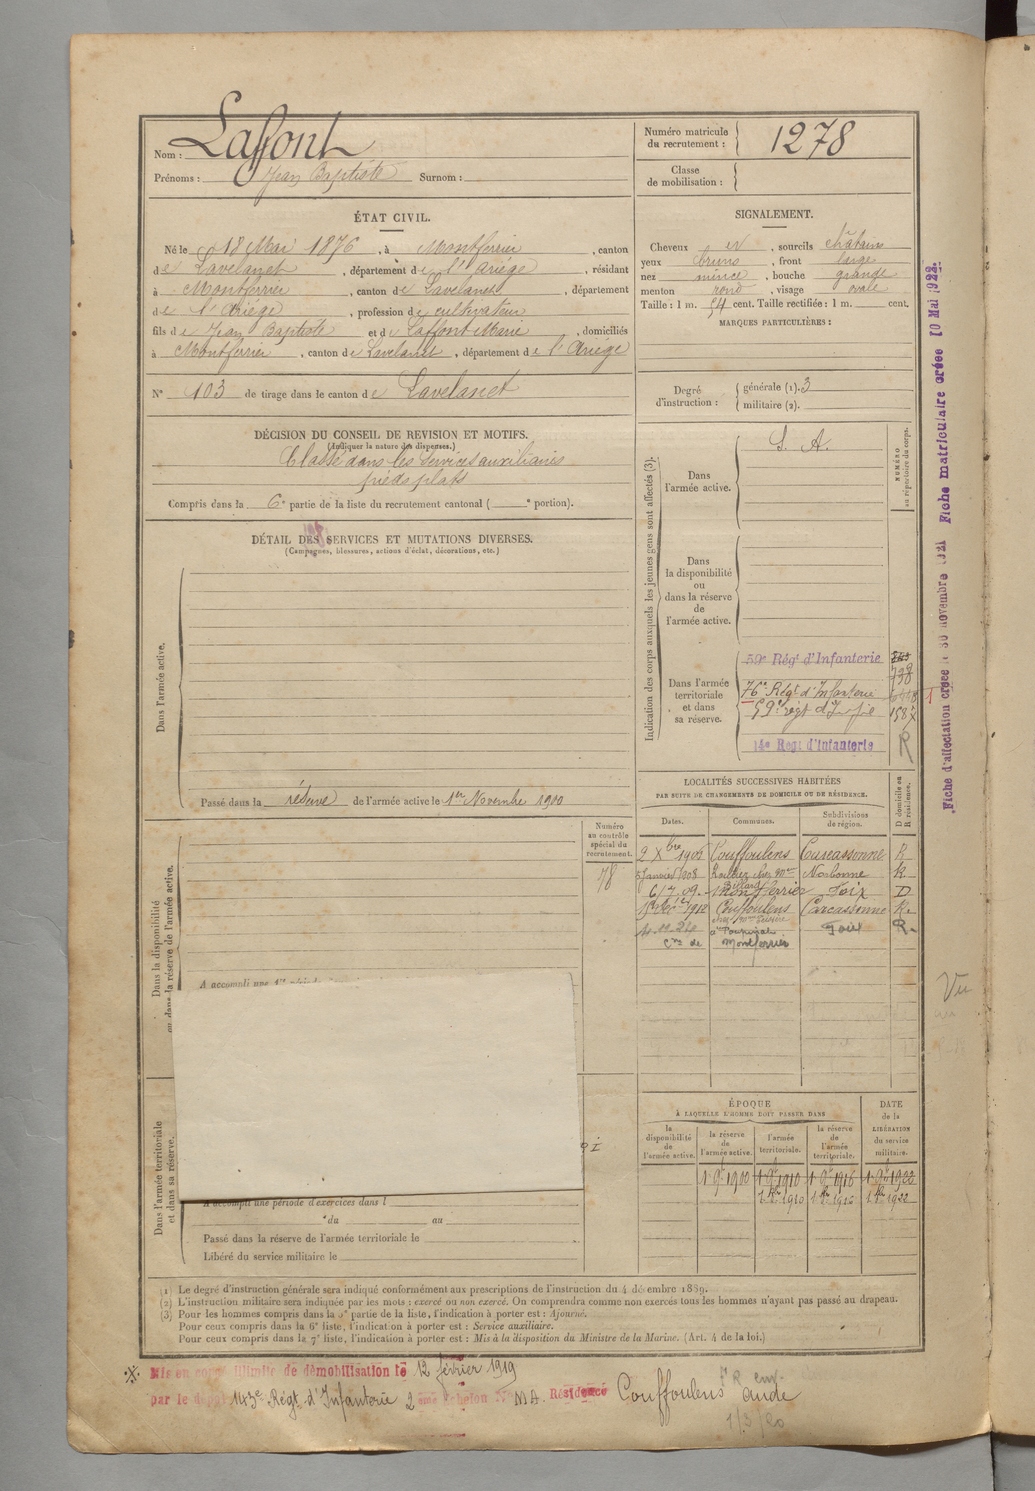 Nom : Laffont
Prénoms : Jean Baptiste Surnom :
ÉTAT CIVIL.
Né le 18 Mai 1876, à Montferrier, canton
de Lavelanet, département de l'Ariége, résidant
à Montferrier, canton de Lavelanet, département
de l'Ariége, profession de cultivateur
fils de Jean Baptiste et de Laffont Marie, domiciliés
à Montferrier, canton de Lavelanet, département de l'Ariége
N° 103 de tirage dans le canton de Lavelanet
DÉCISION DU CONSEIL DE REVISION ET MOTIFS.
(Indiquer la nature des dispenses.)
Classé dans les services auxiliaires
pieds plats
Compris dans la 6e partie de la liste du recrutement cantonal ( e portion).
DÉTAIL DES SERVICES ET MUTATIONS DIVERSES.
(Campagnes, blessures, actions d'éclat, décorations, etc.)
Dans l'armée active.
Passé dans la réserve de l'armée active le 1er Novembre 1900
Dans la disponibilité
ou dans la réserve de l'armée active.
Numéro
au contrôle
spécial du
recrutement.
78
A accompli une 1re
Dans l'armée territoriale
et dans sa réserve.
A accompli une période d'exercices dans l
du au
Passé dans la réserve de l'armée territoriale le
Libéré du service militaire le
Numéro matricule
du recrutement : 1278
Classe
de mobilisation :
SIGNALEMENT.
Cheveux et, sourcils châtains
yeux bruns, front large
nez mince, bouche grande
menton rond, visage ovale
Taille : 1 m. 54 cent. Taille rectifiée : 1 m. cent.
MARQUES PARTICULIÈRES :
Degré
d'instruction :
générale (1). 3
militaire (2).
Indication des corps auxquels les jeunes gens sont affectés (3).
Dans
l'armée active.
S. A.
NUMÉRO
au répertoire du corps.
Dans
la disponibilité
ou
dans la réserve
de
l'armée active.
Dans l'armée
territoriale
et dans
sa réserve.
59e Régt d'Infanterie
738
76e Régt d'Infanterie
59e régt d'Inf
1587
14e Régt d'Infanterie R
LOCALITÉS SUCCESSIVES HABITÉES
PAR SUITE DE CHANGEMENTS DE DOMICILE OU DE RÉSIDENCE.
Dates. Communes. Subdivisions
de région.
D domicile ou
R résidence.
2 Xbre 1906 Couffoulens Carcassonne R
5 Janvier 1908 chez Mme Narbonne R
6/7.09. Montferrier Foix D
1912 Couffoulens Carcassonne R.
Foix R.
Cne de Montferrier
ÉPOQUE
À LAQUELLE L'HOMME DOIT PASSER DANS
la
disponibilité
de
l'armée active.
la réserve
de
l'armée active.
l'armée
territoriale.
la réserve
de
l'armée
territoriale.
DATE
de la
LIBÉRATION
du service
militaire.
1 9bre 1900 1 9bre 1910 1 9bre 1916 1 9bre 1922
1910 1916 1922
(1) Le degré d'instruction générale sera indiqué conformément aux prescriptions de l'instruction du 4 décembre 1889.
(2) L'instruction militaire sera indiquée par les mots : exercé ou non exercé. On comprendra comme non exercés tous les hommes n'ayant pas passé au drapeau.
(3) Pour les hommes compris dans la 5e partie de la liste, l'indication à porter est : Ajourné.
Pour ceux compris dans la 6e liste, l'indication à porter est : Service auxiliaire.
Pour ceux compris dans la 7e liste, l'indication à porter est : Mis à la disposition du Ministre de la Marine. (Art. 4 de la loi.)
Mis en congé illimité de démobilisation le 12 février 1919
par le dépôt 143e Régt d'Infanterie 2 ème Echelon N° MA. Résidence Couffoulens aude
1/3/20
Fiche d'affectation créée le 30 Novembre 1921 Fiche matriculaire créée 10 Mai 1922
Vu